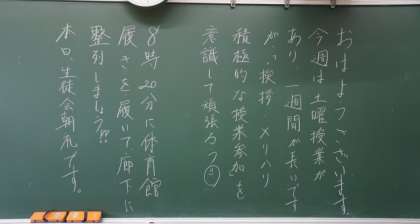 おはようございます
今週は土曜授業が
あり、一週間が長いです
が、挨拶 メリハリ
積極的な授業参加を
意識して頑張ろう
8時20分に体育館
履きを履いて廊下に
整列しましょう!!
本日、生徒会朝礼です。